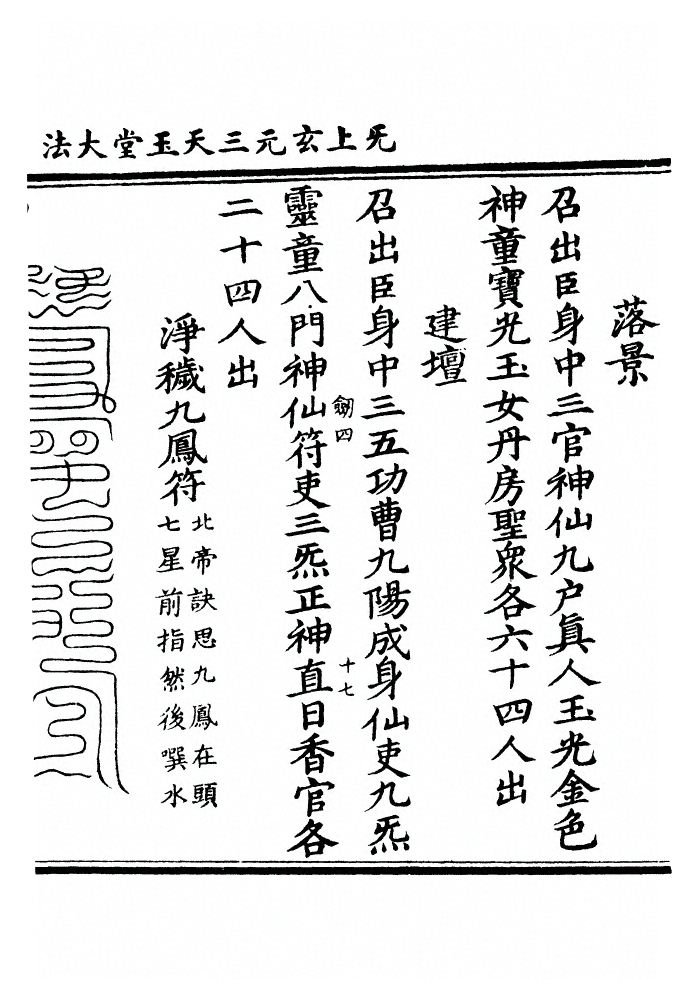 旡上玄元三天玉堂大法
落景
召出臣身中三官神仙九户真人玉光金色
神童寶光玉女丹房聖衆各六十四人出
建壇
召出臣身中三五功曹九陽成身仙吏九炁
劒四 十七
靈童八門神仙符吏三炁正神直日香官各
二十四人出
淨穢九鳳符
北帝訣思九鳳在頭
七星前指然後噀水